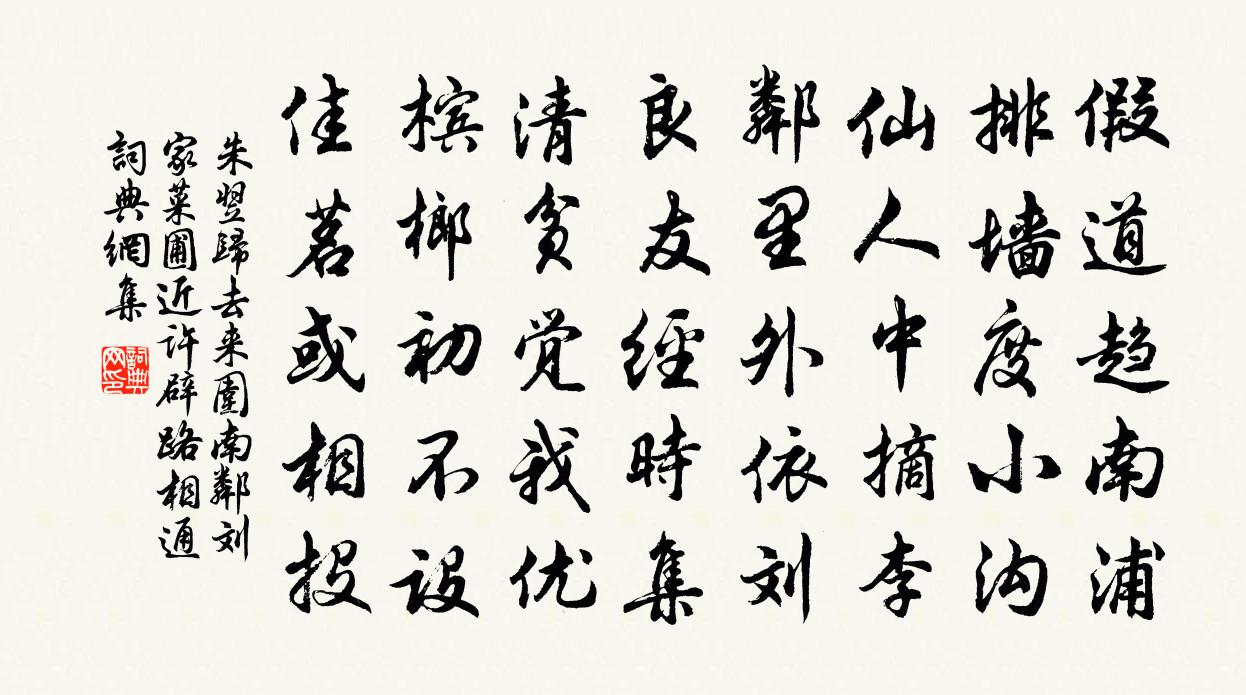 假道趋南浦
排墙度小沟
仙人中摘李
鄰里外依刘
良友經時集
清贫觉我优
槟榔初不设
佳茗或相投
朱翌歸去来園南鄰刘
家菜圃近许辟路相通
詞典網集
詞典网印